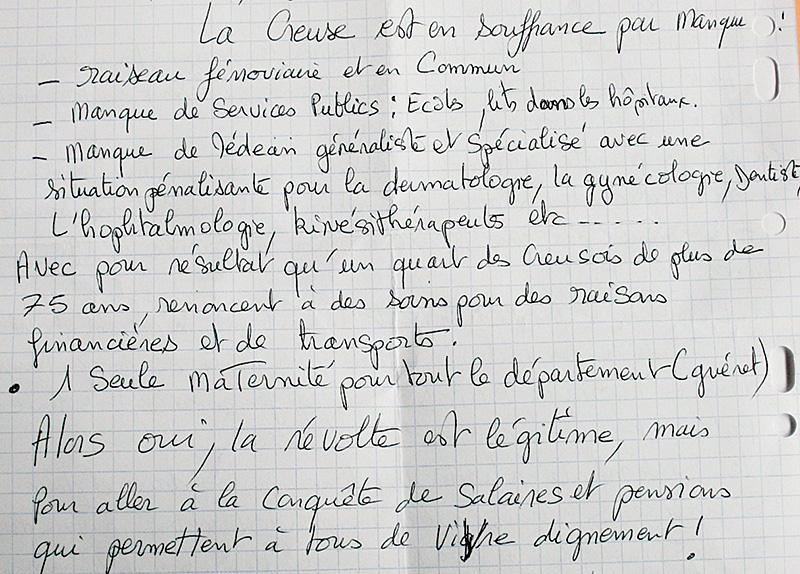 La Creuse est en souffrance par manque :!
– raiseau férroviaire et en Commun
– Manque de Services Publics : Ecoles, lits dans les hôpitaux.
– Manque de Médecin généraliste et spécialisé avec une
situation pénalisante pour la dermatologie, la gynécologie, Dentiste,
L'hophtalmologie, kinésithérapeuts etc -----
Avec pour résultat qu'un quart des Creusois de plus de
75 ans, renoncent à des soins pour des raisons
financières et de transports.
• 1 Seule maternité pour tout le département (guéret)
Alors oui, la révolte est légitime, mais
pour aller à la Conquête de Salaires et pensions
qui permettent à tous de Vivre dignement !